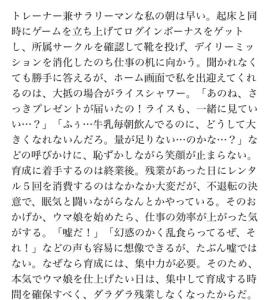 トレーナー兼サラリーマンな私の朝は早い。起床と同
時にゲームを立ち上げてログインボーナスをゲット
し、所属サークルを確認して靴を投げ、デイリーミッ
ションを消化したのち仕事の机に向かう。聞かれなく
ても勝手に答えるが、ホーム画面で私を出迎えてくれ
るのは、大抵の場合がライスシャワー。「あのね、さ
っきプレゼントが届いたの！ライスも、一緒に見てい
い…？」「ふぅ…牛乳毎朝飲んでるのに、どうして大
きくなれないんだろ。量が足りない…のかな…？」な
どの呼びかけに、恥ずかしながら笑顔が止まらない。
育成に着手するのは終業後。残業があった日にレンタ
ル５回を消費するのはなかなか大変だが、不退転の決
意で、眠気と闘いながらなんとかやっている。そのお
かげか、ウマ娘を始めたら、仕事の効率が上がった気
がする。「嘘だ！」「幻惑のかく乱食らってるぜ、そ
れ！」などの声も容易に想像できるが、たぶん嘘では
ない。なぜなら育成には、集中力が必要。そのため、
本気でウマ娘を仕上げたい日は、集中して育成する時
間を確保すべく、ダラダラ残業しなくなったからだ。